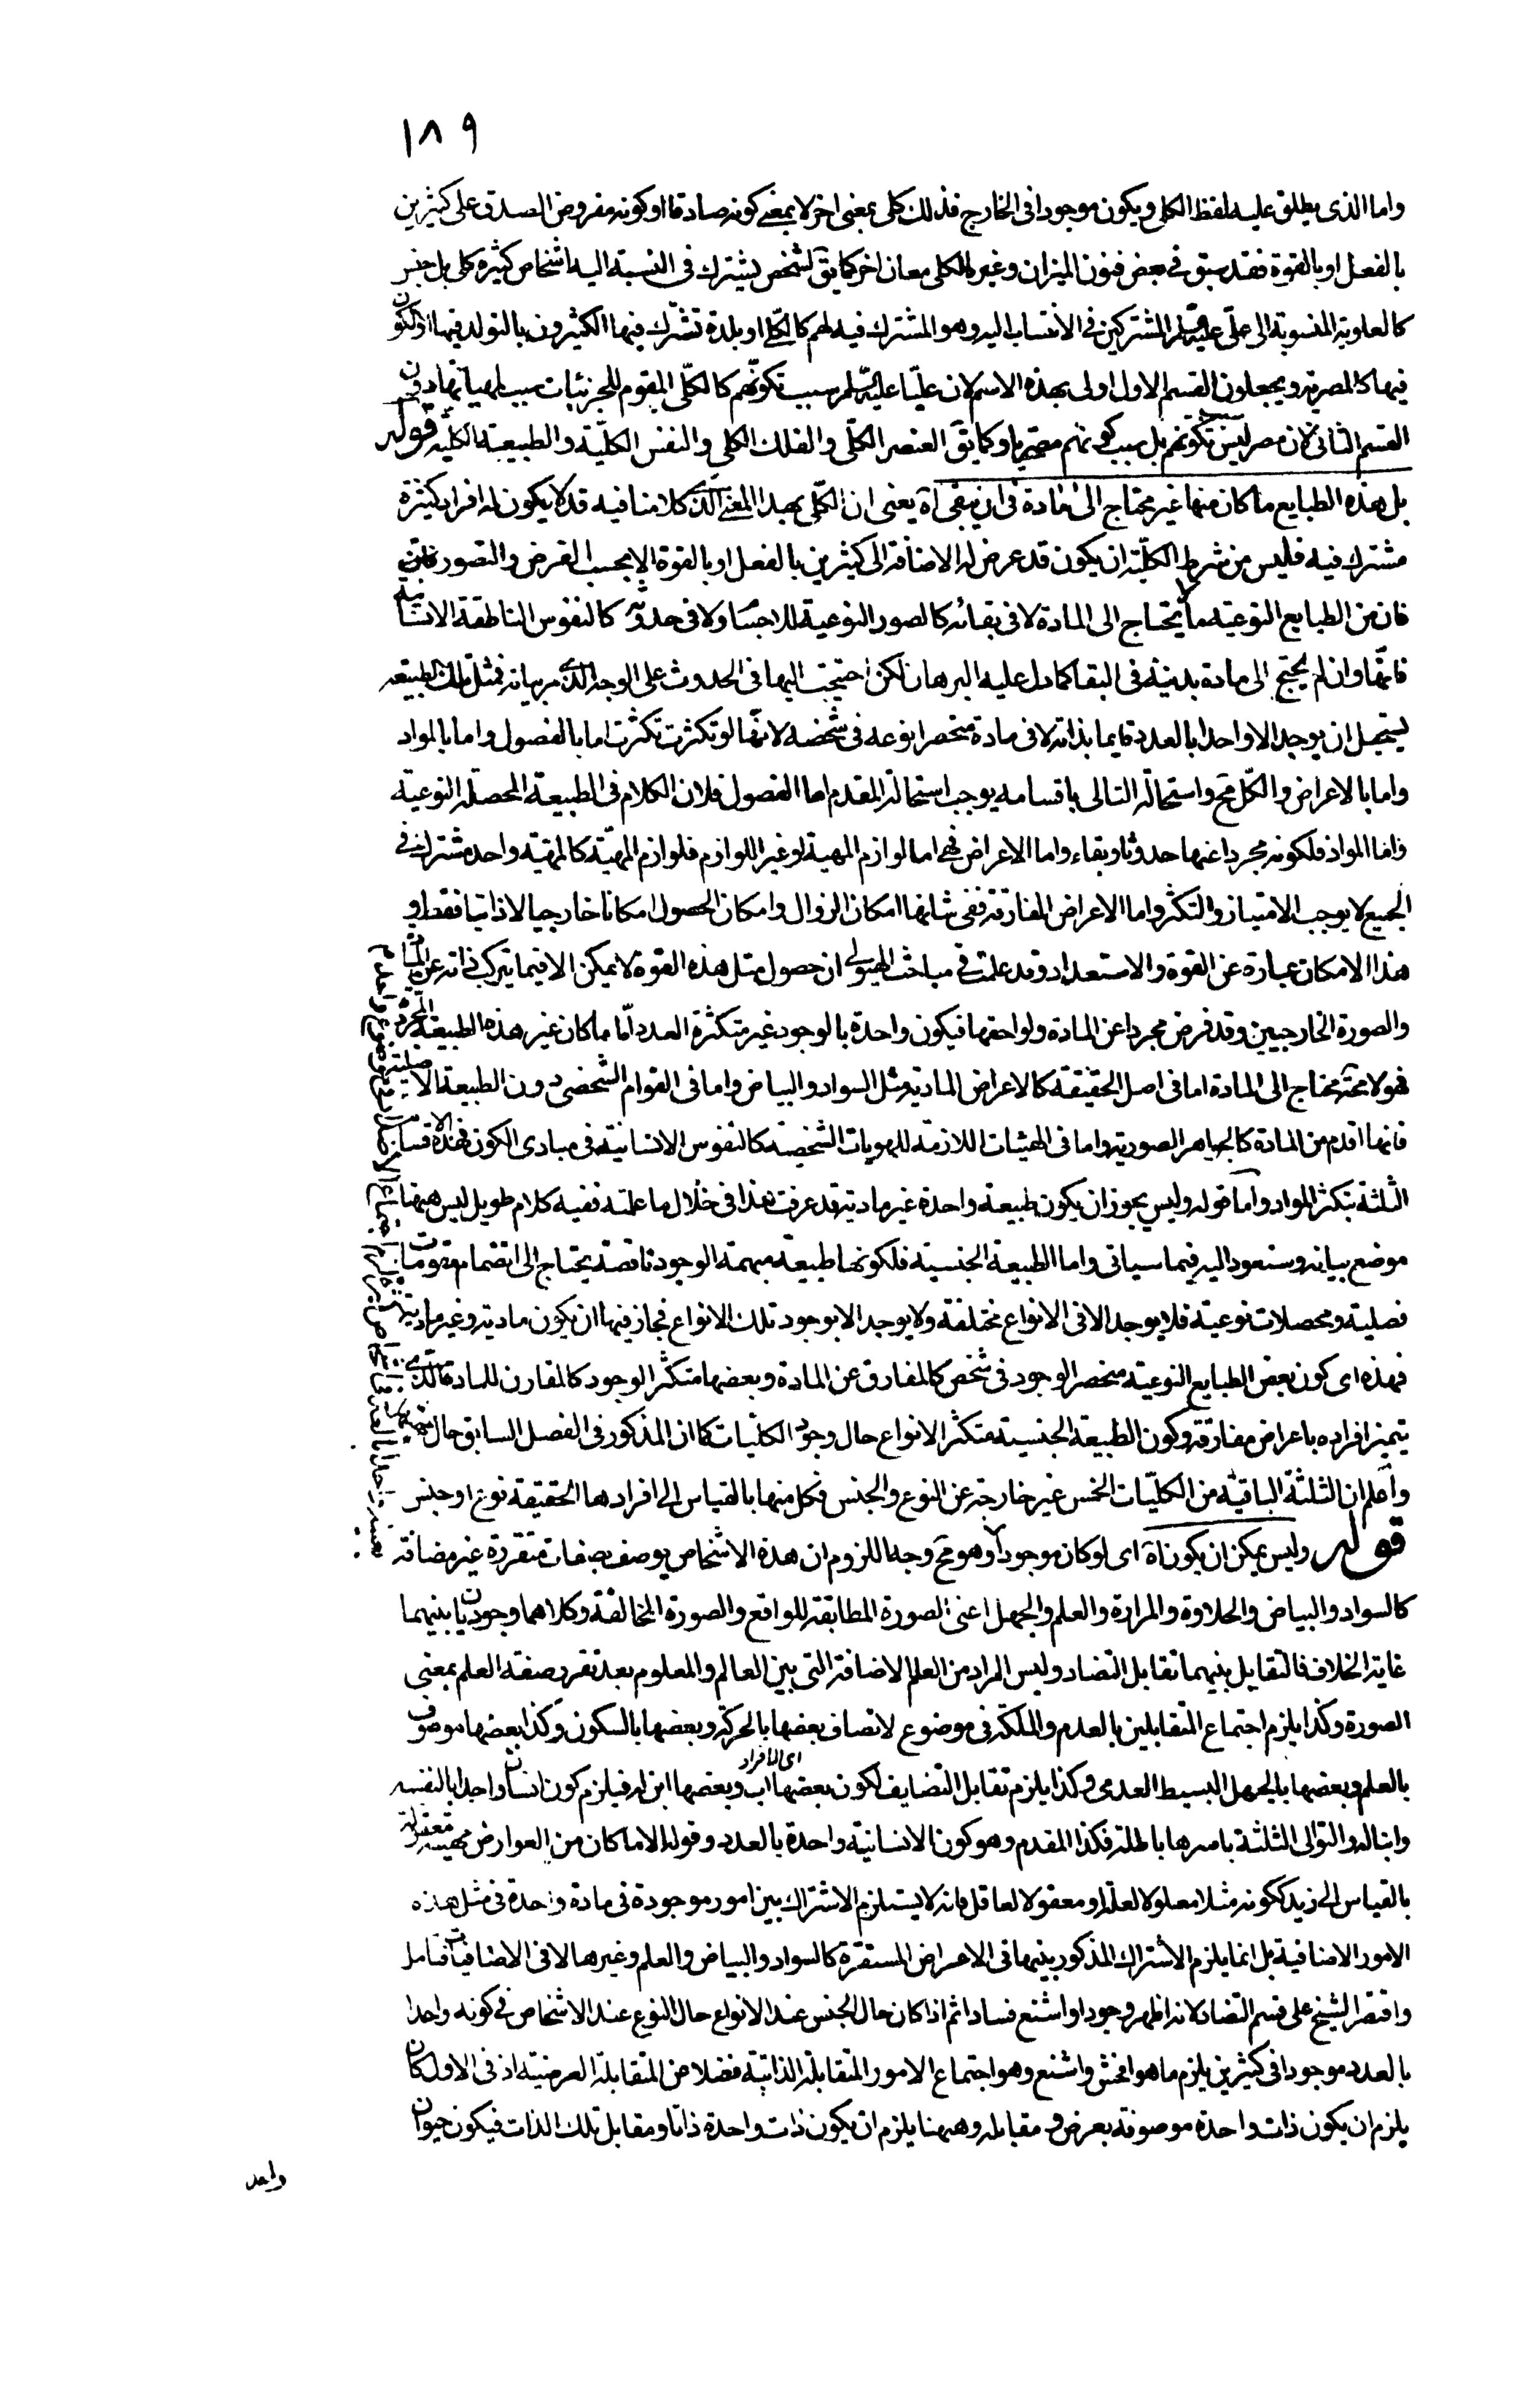 ١٨٩
واما الذى يطلق عليه لفظ الكلى ويكون موجودا فى الخارج فذلك كلى بمعنى اخر لا بمعنى كونه صادقا او كونه مفروض الصدق على كثيرين
بالفعل او بالقوة فقد سبق فى بعض فنون الميزان وغيره للكلى معان اخر كما يق لشخص يشترك فى النسبة اليه اشخاص كثيره كلى بل جنس
كالعلوية المنسوبة الى على عليه السلم المشتركين فى الانتساب اليه وهو المشترك فيه لهم كالكلى او بلدة تشترك فيها الكثيرون بالتولد فيها او الكون
فيها كالمصرية ويجعلون القسم الاول اولى بهذه الاسم لان عليا عليه السلم سبب تكونهم كالكلى المقوم للجزئيات سبب لمهياتها دون
القسم الثانى لان مصر ليس سبب تكونهم بل سبب كونهم مصريا وكما يق العنصر الكلى والفلك الكلى والنفس الكلية والطبيعة الكلية قوله
بل هذه الطبايع ما كان منها غير محتاج الى مادة فى ان يبقى آه يعنى ان الكلى بهذا المعنى الذى كلامنا فيه قد لا يكون له افراد كثيرة
مشترك فيه فليس من شرط الكلية ان يكون قد عرض له الاضافة الى كثيرين بالفعل او بالقوة الا بحسب الفرض والتصور
فان من الطبايع النوعية ما لا يحتاج الى المادة لا فى بقائه كالصور النوعية للاجسام ولا فى حدوثه كالنفوس الناطقة الانسانية
فانها وان لم يحتج الى مادة بدنية فى البقا كما دل عليه البرهان لكن احتيجت اليها فى الحدوث على الوجه الذى مر بيانه فمثل تلك الطبيعه
يستحيل ان يوجد الا واحدا بالعدد قايما بذاته لا فى مادة منحصرا نوعه فى شخصه لانها لو تكثرت تكثرت اما بالفصول واما بالمواد
واما بالاعراض والكل مح واستحالة التالى باقسامه يوجب استحالة المقدم اما الفصول فلان الكلام فى الطبيعة المحصلة النوعية
واما المواد فلكونه مجردا عنها حدوثا وبقاء واما الاعراض فهى اما لوازم المهية او غير اللوازم فلوازم المهية كالمهية واحدة مشترك فى
الجميع لا يوجب الامتياز والتكثر واما الاعراض المفارقة ففى شانها امكان الزوال وامكان الحصول امكانا خارجيا لا ذاتيا فقط و
هذا الامكان عبارة عن القوة والاستعداد وقد علمت فى مباحث الهيولى ان حصول مثل هذه القوة لا يمكن الا فيما يتركب ذاته عن المادة
والصورة الخارجيين وقد فرض مجردا عن المادة ولواحقها فيكون واحدة بالوجود غير متكثرة العدد اما ما كان غير هذه الطبيعة المجردة
فهو لا محة محتاج الى المادة اما فى اصل الحقيقة كالاعراض المادية مثل السواد والبياض واما فى القوام الشخصى دون الطبيعة الاصلية
فانها اقدم من المادة كالجواهر الصورية واما فى الهيئات اللازمة للهويات الشخصية كالنفوس الانسانية فى مبادى الكون فهذه الاقسام
الثلثة بتكثر المواد واما قوله وليس يجوز ان يكون طبيعة واحدة غير مادية قد عرفت هذا فى خلال ما علمته ففيه كلام طويل ليس ههنا
موضع بيانه وسنعود اليه فيما سياتى واما الطبيعة الجنسية فلكونها طبيعة مبهمة الوجود ناقصة يحتاج الى انضمام مقومات
فصلية ومحصلات نوعية فلا يوجد الا فى الانواع مختلفة ولا يوجد الا بوجود تلك الانواع فجاز فيها ان يكون مادية وغير مادية
فهذه اى كون بعض الطبايع النوعية منحصر الوجود فى شخص كالمفارق عن المادة وبعضها متكثر الوجود كالمقارن للمادة الذى
يتميز افراده باعراض مفارقة وكون الطبيعة الجنسية متكثر الانواع حال وجود الكليات كما ان المذكور فى الفصل السابق حال
واعلم ان الثلثة الباقية من الكليات الخمس غير خارجة عن النوع والجنس فكل منها بالقياس الى افرادها الحقيقة نوع او جنس
قوله وليس يمكن ان يكون آه اى لو كان موجودا وهو مح وجه اللزوم ان هذه الاشخاص يوصف بصفات متقررة غير مضافة
كالسواد والبياض والحلاوة والمرارة والعلم والجهل اعنى الصورة المطابقة للواقع والصورة المخالفة وكلاهما وجوديان بينهما
غاية الخلاف فالتقابل بينهما تقابل التضاد وليس المراد من العلم الاضافة التى بين العالم والمعلوم بعد تقرر صفة العلم بمعنى
الصورة وكذا يلزم اجتماع المتقابلين بالعدم والملكة فى موضوع لاتصاف بعضها بالحركة وبعضها بالسكون وكذا بعضها موصوف
بالعلم وبعضها بالجهل البسيط العدمى وكذا يلزم تقابل التضايف لكون بعضها اى الافراد اب وبعضها ابن له فيلزم كون انسان واحد ابا لنفسه
وابنا له والتوالى الثلثة باسرها باطلة فكذا المقدم وهو كون الانسانية واحدة بالعدد وقوله الا ما كان من العوارض مهيته معقولة
بالقياس الى زيد ككونه مثلا معلولا لعلة او معقولا لعاقل فانه لا يستلزم الاشتراك بين امور موجودة فى مادة واحدة فى مثل هذه
الامور الاضافية بل انما يلزم الاشتراك المذكور بينهما فى الاعراض المستقرة كالسواد والبياض والعلم وغيرها لا فى الاضافيات فتامل
واقتصر الشيخ على قسم التضاد لانه اظهر وجودا واشنع فسادا ثم اذا كان حال الجنس عند الانواع حال النوع عند الاشخاص فى كونه واحدا
بالعدد موجودا فى كثيرين يلزم ما هو افحش واشنع وهو اجتماع الامور المتقابلة الذاتية فضلا عن المتقابلة العرضية اذ فى الاول كان
يلزم ان يكون ذات واحدة موصوفة بعرض ومقابله وههنا يلزم ان يكون ذات واحدة ذاتا ومقابل تلك الذات فيكون حيوان
واحد